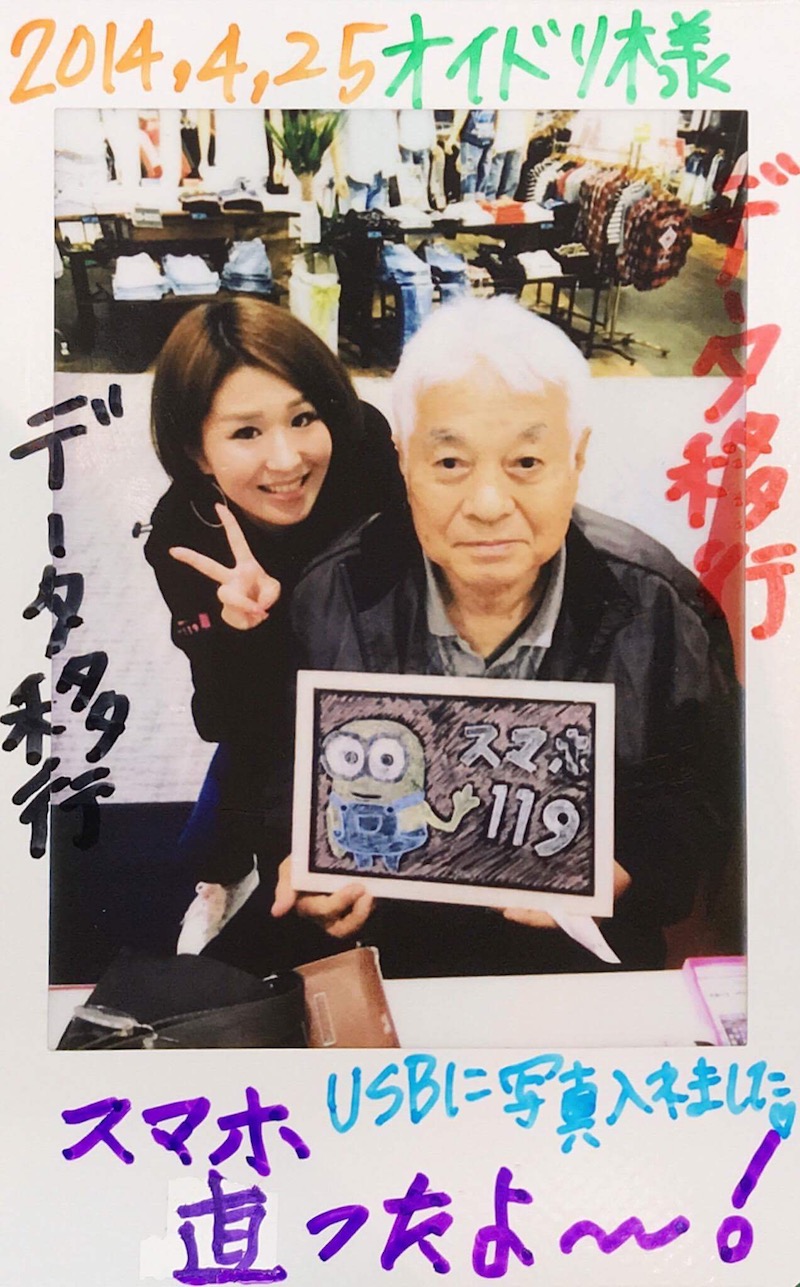 2014,4,25 オイドリ様
データ移行
データ移行
スマホ
119
119
USBに写真入れました
スマホ
直ったよ〜!